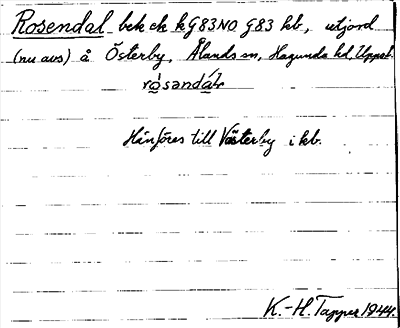 Rosendal bek ck kG83NO G83 kb, utjord
(nu avs) å Österby, Ålands sn, Hagunda hd, Uppsl.
rósandàl
Hänföres till Västerby i kb.
K.-H. Tapper 1944.